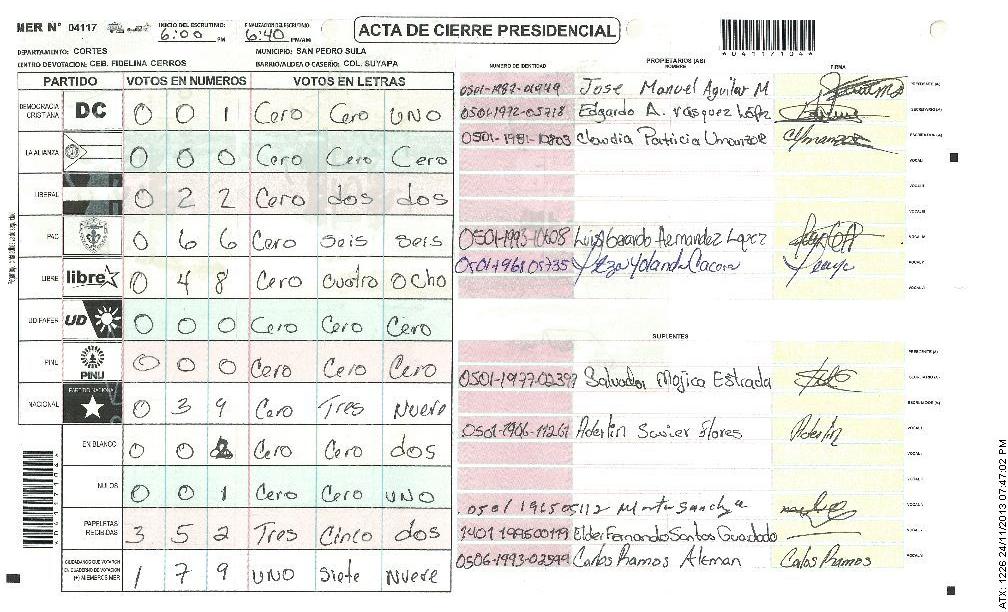 MER N° 04117
INICIO DEL ESCRUTINIO: 6:00 PM
FINALIZACION DEL ESCRUTINIO: 6:40 PM/AM
ACTA DE CIERRE PRESIDENCIAL
*04117104*
DEPARTAMENTO: CORTES
MUNICIPIO: SAN PEDRO SULA
CENTRO DE VOTACION: CEB. FIDELINA CERROS
BARRIO/ALDEA O CASERIO: COL. SUYAPA
PARTIDO VOTOS EN NUMEROS VOTOS EN LETRAS
DEMOCRACIA CRISTIANA DC 0 0 1 Cero Cero UNO
LA ALIANZA 0 0 0 Cero Cero Cero
LIBERAL 0 2 2 Cero dos dos
PAC 0 6 6 Cero seis seis
LIBRE libre 0 4 8 Cero cuatro Ocho
UD FAPER UD 0 0 0 Cero Cero Cero
PINU PINU 0 0 0 Cero Cero Cero
NACIONAL PARTIDO NACIONAL 0 3 9 Cero Tres Nueve
EN BLANCO 0 0 2 Cero Cero dos
NULOS 0 0 1 Cero Cero UNO
PAPELETAS RECIBIDAS 3 5 2 Tres Cinco dos
CIUDADANOS QUE VOTARON EN CUADERNO DE VOTACION (+) MIEMBROS MER 1 7 9 UNO Siete Nueve
PROPIETARIOS (AS)
NUMERO DE IDENTIDAD NOMBRE FIRMA
Jose Manuel Aguilar M PRESIDENTE (A)
0501-1972-05718 Edgardo A. Vasquez López SECRETARIO (A)
0501-1981-10803 Claudia Patricia Umanzor ESCRUTADOR (A)
VOCAL I
VOCAL II
VOCAL III
0501-1993-10608 Luis Gerardo Hernandez Lopez VOCAL IV
0501-1961-05735 Yolanda VOCAL V
SUPLENTES
PRESIDENTE (A)
0501-1977-02397 Salvador Mojica Estrada SECRETARIO (A)
ESCRUTADOR (A)
0501-1986-11261 Aderlin Savier Flores Aderlin VOCAL I
0501 1965 05112
Elder Fernando Santos Guardado
0506-1993-02599 Carlos Ramos Aleman Carlos Ramos
ATX: 1226 24/11/2013 07:47:02 PM